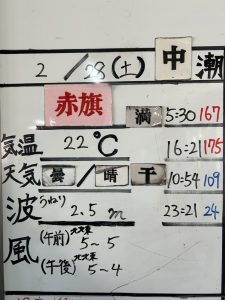 2/28(土) 中 潮
赤旗 満 5:30 167
気温 22℃ 16:21 175
天気 曇/晴 干 10:54 109
波 うねり 2.5m 23:21 24
風 (午前) 北北東 5~5
(午後) 北北東 5~4